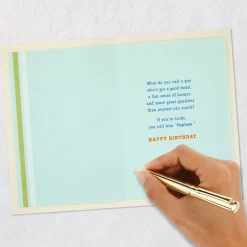 What do you call a guy
who's got a good heart,
a fun sense of humor,
and more great qualities
than anyone can count?
If you're lucky,
you call him "Nephew."
HAPPY BIRTHDAY